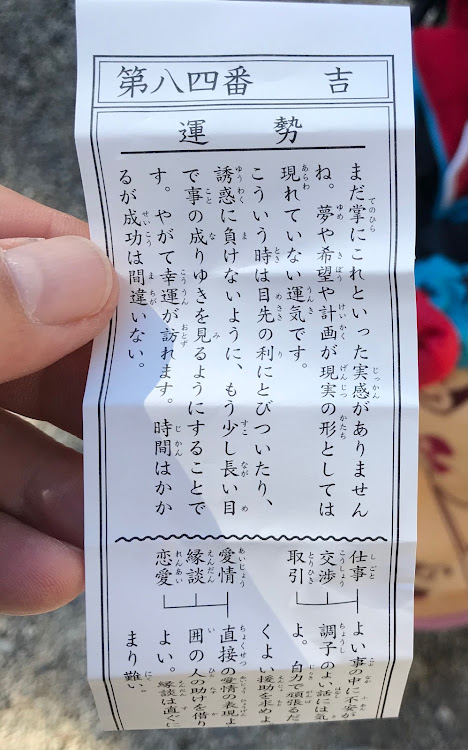 第八四番 吉
運勢
まだ掌にこれといった実感がありません
ね。夢や希望や計画が現実の形としては
現れていない運気です。
こういう時は目先の利にとびついたり、
誘惑に負けないように、もう少し長い目
で事の成りゆきを見るようにすることで
す。やがて幸運が訪れます。時間はかか
るが成功は間違いない。
仕事
交渉
取引
よい事の中に不安が
調子のよい話には気
よ。自力で頑張るだ
くよい援助を求めよ
愛情
縁談
恋愛
直接の愛情の表現よ
囲の人の助けを借り
よい。縁談は直ぐに
まり難い